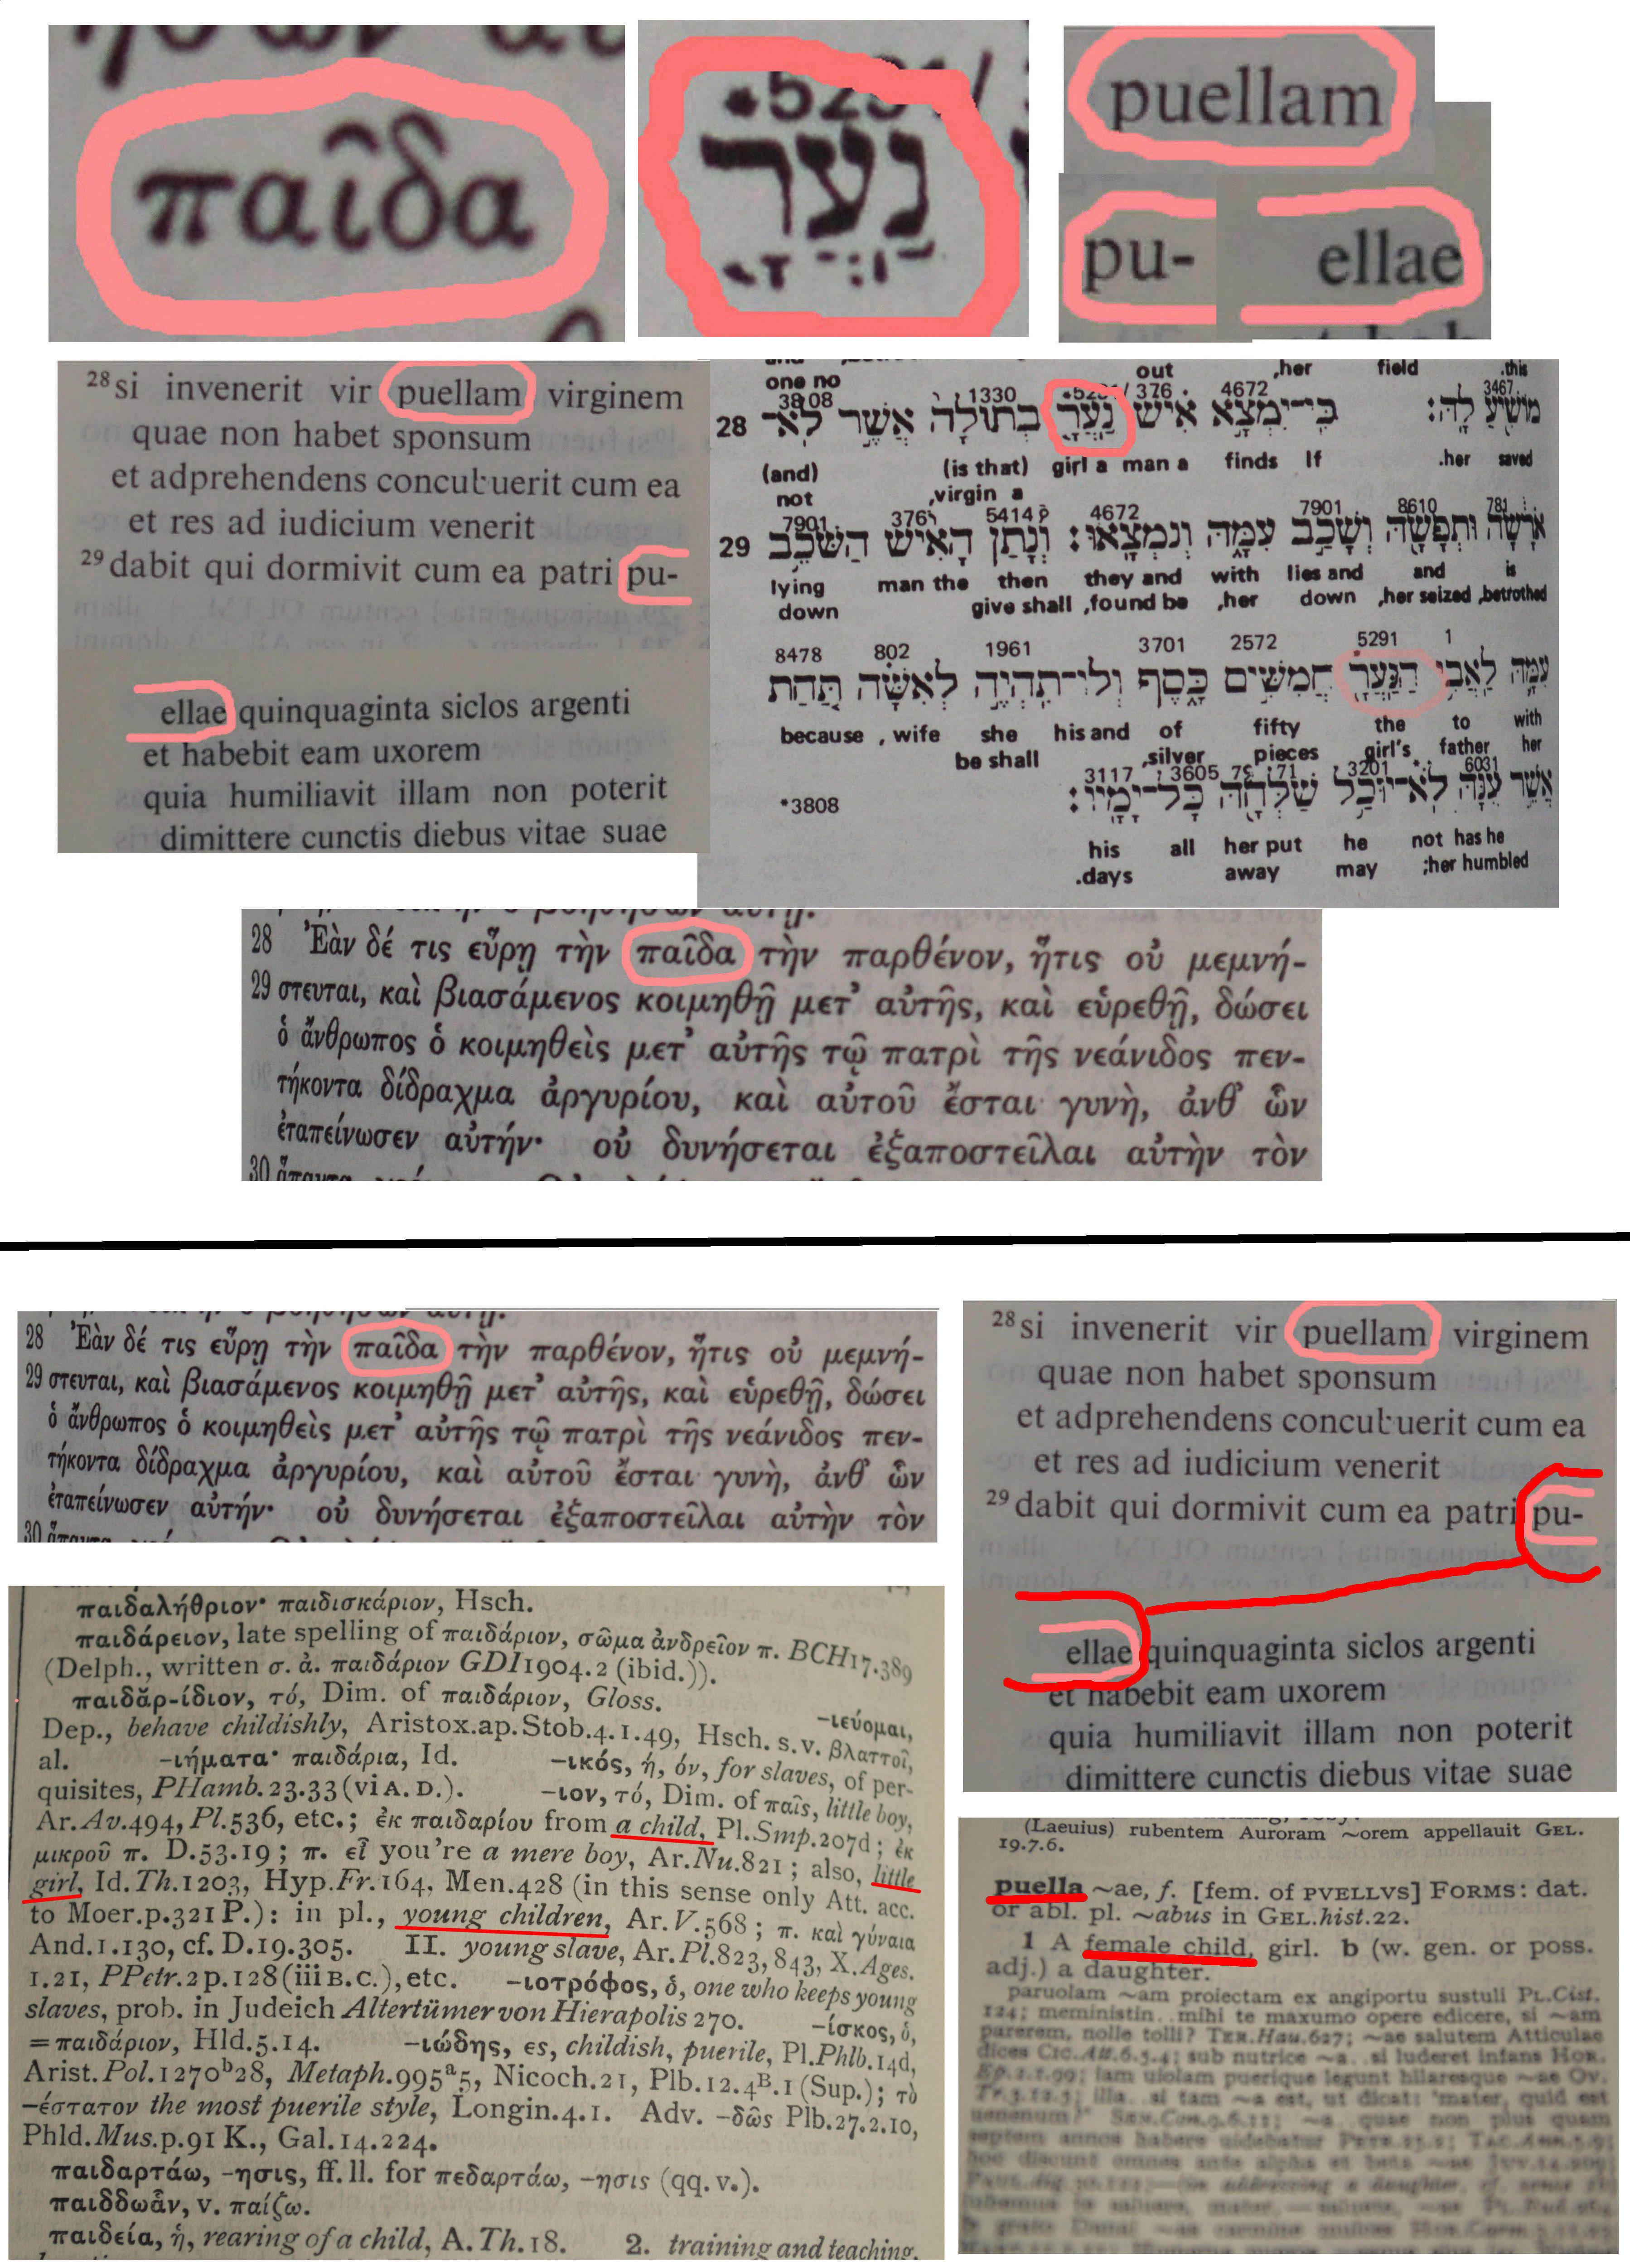 παῖδα
נַעֲרָ
puellam
pu- ellae
28 si invenerit vir puellam virginem
quae non habet sponsum
et adprehendens concubuerit cum ea
et res ad iudicium venerit
29 dabit qui dormivit cum ea patri pu-
ellae quinquaginta siclos argenti
et habebit eam uxorem
quia humiliavit illam non poterit
dimittere cunctis diebus vitae suae
out ,her field .this
one no
3808 1330 376 4672 3467
28 מוֹשִׁיעַ לָהּ: כִּי־יִמְצָא אִישׁ נַעֲרָ בְתוּלָה אֲשֶׁר לֹא־
(and) (is that) girl a man a finds If .her saved
not ,virgin a
7901 376 5414 4672 7901 8610 781
29 אֹרָשָׂה וּתְפָשָׂהּ וְשָׁכַב עִמָּהּ וְנִמְצָאוּ: וְנָתַן הָאִישׁ הַשֹּׁכֵב
lying man the then they and with lies and and is
down give shall ,found be ,her down ,her seized ,betrothed
8478 802 1961 3701 2572 5291 1
עִמָּהּ לַאֲבִי הַנַּעֲרָ חֲמִשִּׁים כָּסֶף וְלוֹ־תִהְיֶה לְאִשָּׁה תַּחַת
because , wife she his and of fifty the to with
be shall ,silver pieces girl's father her
3117 3605 71 3201 6031
אֲשֶׁר עִנָּהּ לֹא־יוּכַל שַׁלְּחָהּ כָּל־יָמָיו:
*3808
his all her put he not has he
.days away may ;her humbled
28 Ἐὰν δέ τις εὕρῃ τὴν παῖδα τὴν παρθένον, ἥτις οὐ μεμνή-
29 στευται, καὶ βιασάμενος κοιμηθῇ μετ᾽ αὐτῆς, καὶ εὑρεθῇ, δώσει
ὁ ἄνθρωπος ὁ κοιμηθεὶς μετ᾽ αὐτῆς τῷ πατρὶ τῆς νεάνιδος πεν-
τήκοντα δίδραχμα ἀργυρίου, καὶ αὐτοῦ ἔσται γυνὴ, ἀνθ᾽ ὧν
ἐταπείνωσεν αὐτήν· οὐ δυνήσεται ἐξαποστεῖλαι αὐτὴν τὸν
30
28 Ἐὰν δέ τις εὕρῃ τὴν παῖδα τὴν παρθένον, ἥτις οὐ μεμνή-
29 στευται, καὶ βιασάμενος κοιμηθῇ μετ᾽ αὐτῆς, καὶ εὑρεθῇ, δώσει
ὁ ἄνθρωπος ὁ κοιμηθεὶς μετ᾽ αὐτῆς τῷ πατρὶ τῆς νεάνιδος πεν-
τήκοντα δίδραχμα ἀργυρίου, καὶ αὐτοῦ ἔσται γυνὴ, ἀνθ᾽ ὧν
ἐταπείνωσεν αὐτήν· οὐ δυνήσεται ἐξαποστεῖλαι αὐτὴν τὸν
30
28 si invenerit vir puellam virginem
quae non habet sponsum
et adprehendens concubuerit cum ea
et res ad iudicium venerit
29 dabit qui dormivit cum ea patri pu-
ellae quinquaginta siclos argenti
et habebit eam uxorem
quia humiliavit illam non poterit
dimittere cunctis diebus vitae suae
παιδαλήθριον· παιδισκάριον, Hsch.
παιδάρειον, late spelling of παιδάριον, σῶμα ἀνδρεῖον π. BCH17.389
(Delph., written σ. ἀ. παιδάριον GDI1904.2 (ibid.)).
παιδᾰρ-ίδιον, τό, Dim. of παιδάριον, Gloss. -ιεύομαι,
Dep., behave childishly, Aristox.ap.Stob.4.1.49, Hsch. s.v. βλαττοῖ,
al. -ιήματα· παιδάρια, Id. -ικός, ή, όν, for slaves, of per-
quisites, PHamb.23.33 (vi A.D.). -ιον, τό, Dim. of παῖς, little boy,
Ar.Av.494, Pl.536, etc.; ἐκ παιδαρίου from a child, Pl.Smp.207d; ἐκ
μικροῦ π. D.53.19; π. εἶ you're a mere boy, Ar.Nu.821; also, little
girl, Id.Th.1203, Hyp.Fr.164, Men.428 (in this sense only Att. acc.
to Moer.p.321 P.): in pl., young children, Ar.V.568; π. καὶ γύναια
And.1.130, cf. D.19.305. II. young slave, Ar.Pl.823, 843, X.Ages.
1.21, PPetr.2p.128 (iii B.C.), etc. -ιοτρόφος, ὁ, one who keeps young
slaves, prob. in Judeich Altertümer von Hierapolis 270. -ίσκος, ὁ,
=παιδάριον, Hld.5.14. -ιώδης, ες, childish, puerile, Pl.Phlb.14d,
Arist.Pol.1270b28, Metaph.995a5, Nicoch.21, Plb.12.4B.1 (Sup.); τὸ
-έστατον the most puerile style, Longin.4.1. Adv. -δῶς Plb.27.2.10,
Phld.Mus.p.91 K., Gal.14.224.
παιδαρτάω, -ησις, ff. ll. for πεδαρτάω, -ησις (qq. v.).
παιδδωἅν, v. παίζω.
παιδεία, ἡ, rearing of a child, A.Th.18. 2. training and teaching,
(Laeuius) rubentem Auroram ~orem appellauit GEL.
19.7.6.
puella ~ae, f. [fem. of PVELLVS] FORMS: dat.
or abl. pl. ~abus in GEL.hist.22.
1 A female child, girl. b (w. gen. or poss.
adj.) a daughter.
paruolam ~am proiectam ex angiportu sustuli PL.Cist.
124; meministin.. mihi te maxumo opere edicere, si ~am
parerem, nolle tolli? TER.Hau.627; ~ae salutem Atticulae
dices CIC.Att.6.5.4; sub nutrice ~a.. si luderet infans HOR.